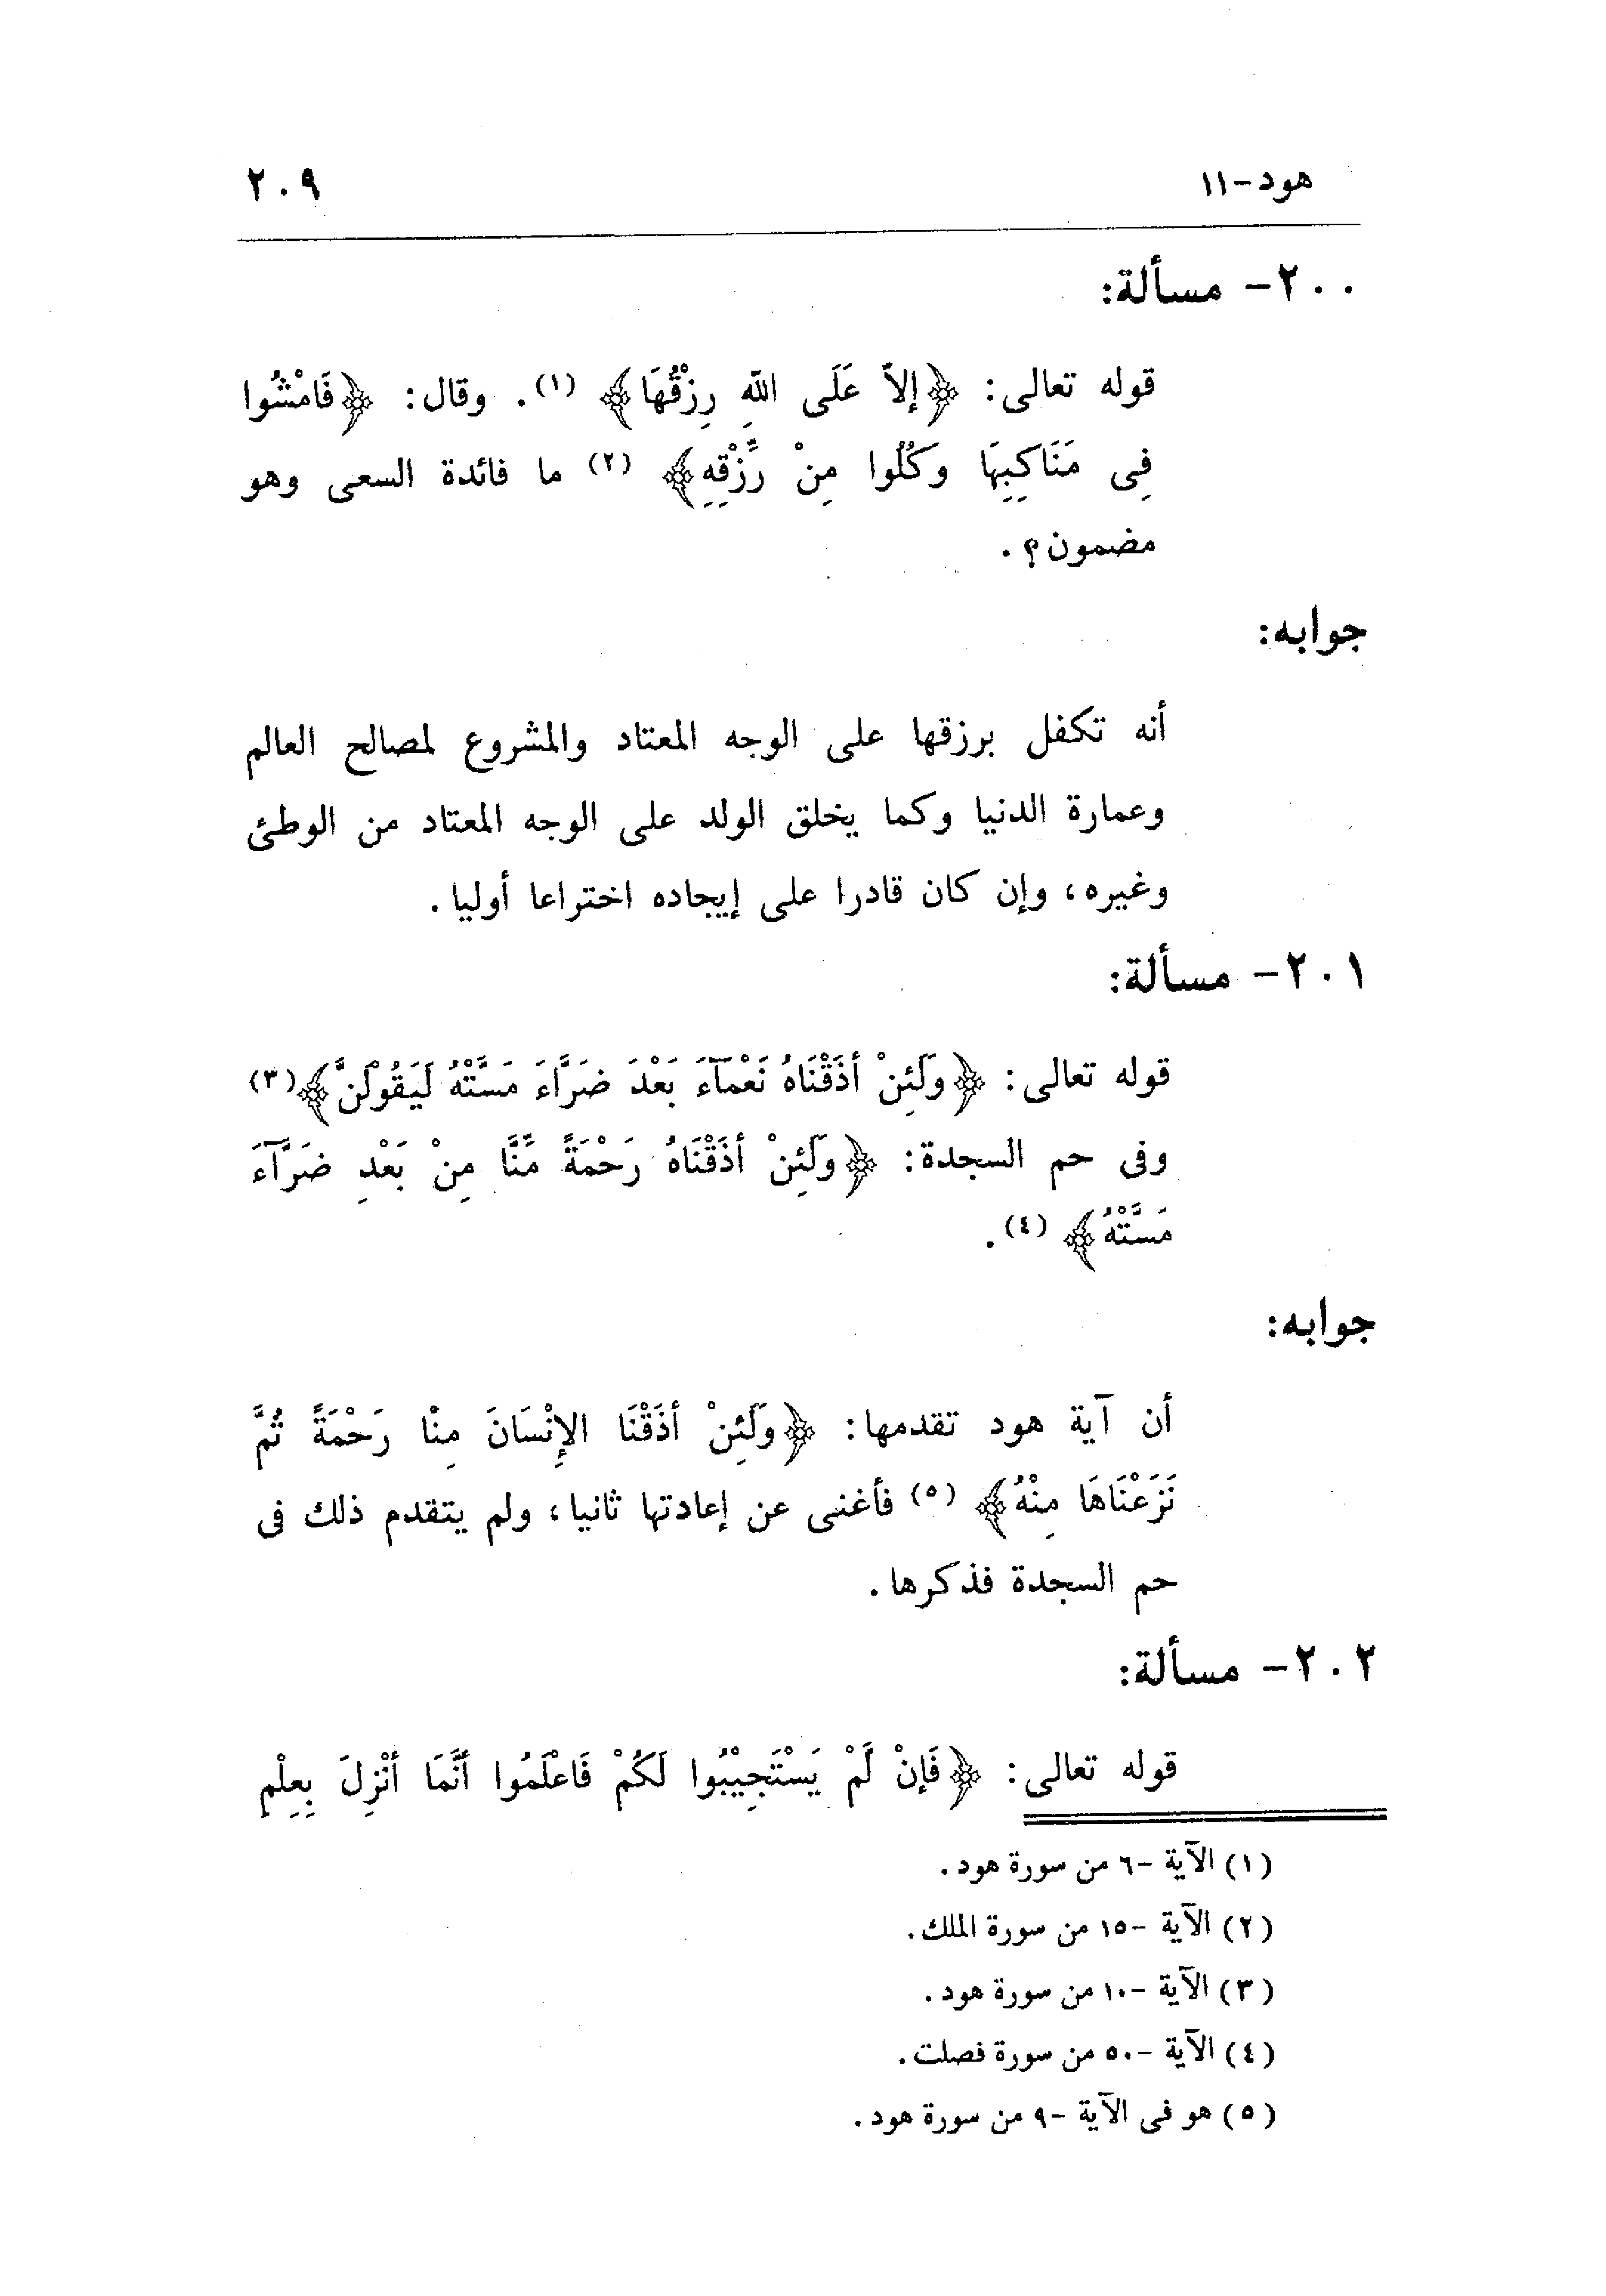 هود-١١
٢٠٩
٢٠٠- مسألة:
قوله تعالى: ﴿إلاَّ عَلَى اللهِ رِزْقُهَا﴾ (١). وقال: ﴿فَامْشُوا
فِى مَنَاكِبِهَا وَكُلُوا مِنْ رِّزْقِهِ﴾ (٢) ما فائدة السعى وهو
مضمون؟.
جوابه:
أنه تكفل برزقها على الوجه المعتاد والمشروع لمصالح العالم
وعمارة الدنيا وكما يخلق الولد على الوجه المعتاد من الوطئ
وغيره، وإن كان قادرا على إيجاده اختراعا أوليا.
٢٠١- مسألة:
قوله تعالى: ﴿وَلَئِنْ أذَقْنَاهُ نَعْمَآءَ بَعْدَ ضَرَّاءَ مَسَّتْهُ لَيَقُوْلَنَّ﴾(٣)
وفى حم السجدة: ﴿وَلَئِنْ أذَقْنَاهُ رَحْمَةً مِّنَّا مِنْ بَعْدِ ضَرَّآءَ
مَسَّتْهُ﴾ (٤).
جوابه:
أن آية هود تقدمها: ﴿وَلَئِنْ أذَقْنَا الإِنْسَانَ مِنْا رَحْمَةً ثُمَّ
نَزَعْنَاهَا مِنْهُ﴾ (٥) فأغنى عن إعادتها ثانيا، ولم يتقدم ذلك فى
حم السجدة فذكرها.
٢٠٢- مسألة:
قوله تعالى: ﴿فَإنْ لَّمْ يَسْتَجِيْبُوا لَكُمْ فَاعْلَمُوا أنَّمَا أنْزِلَ بِعِلْمِ
(١) الآية -٦ من سورة هود.
(٢) الآية -١٥ من سورة الملك.
(٣) الآية -١٠ من سورة هود.
(٤) الآية -٥٠ من سورة فصلت.
(٥) هو فى الآية -٩ من سورة هود.